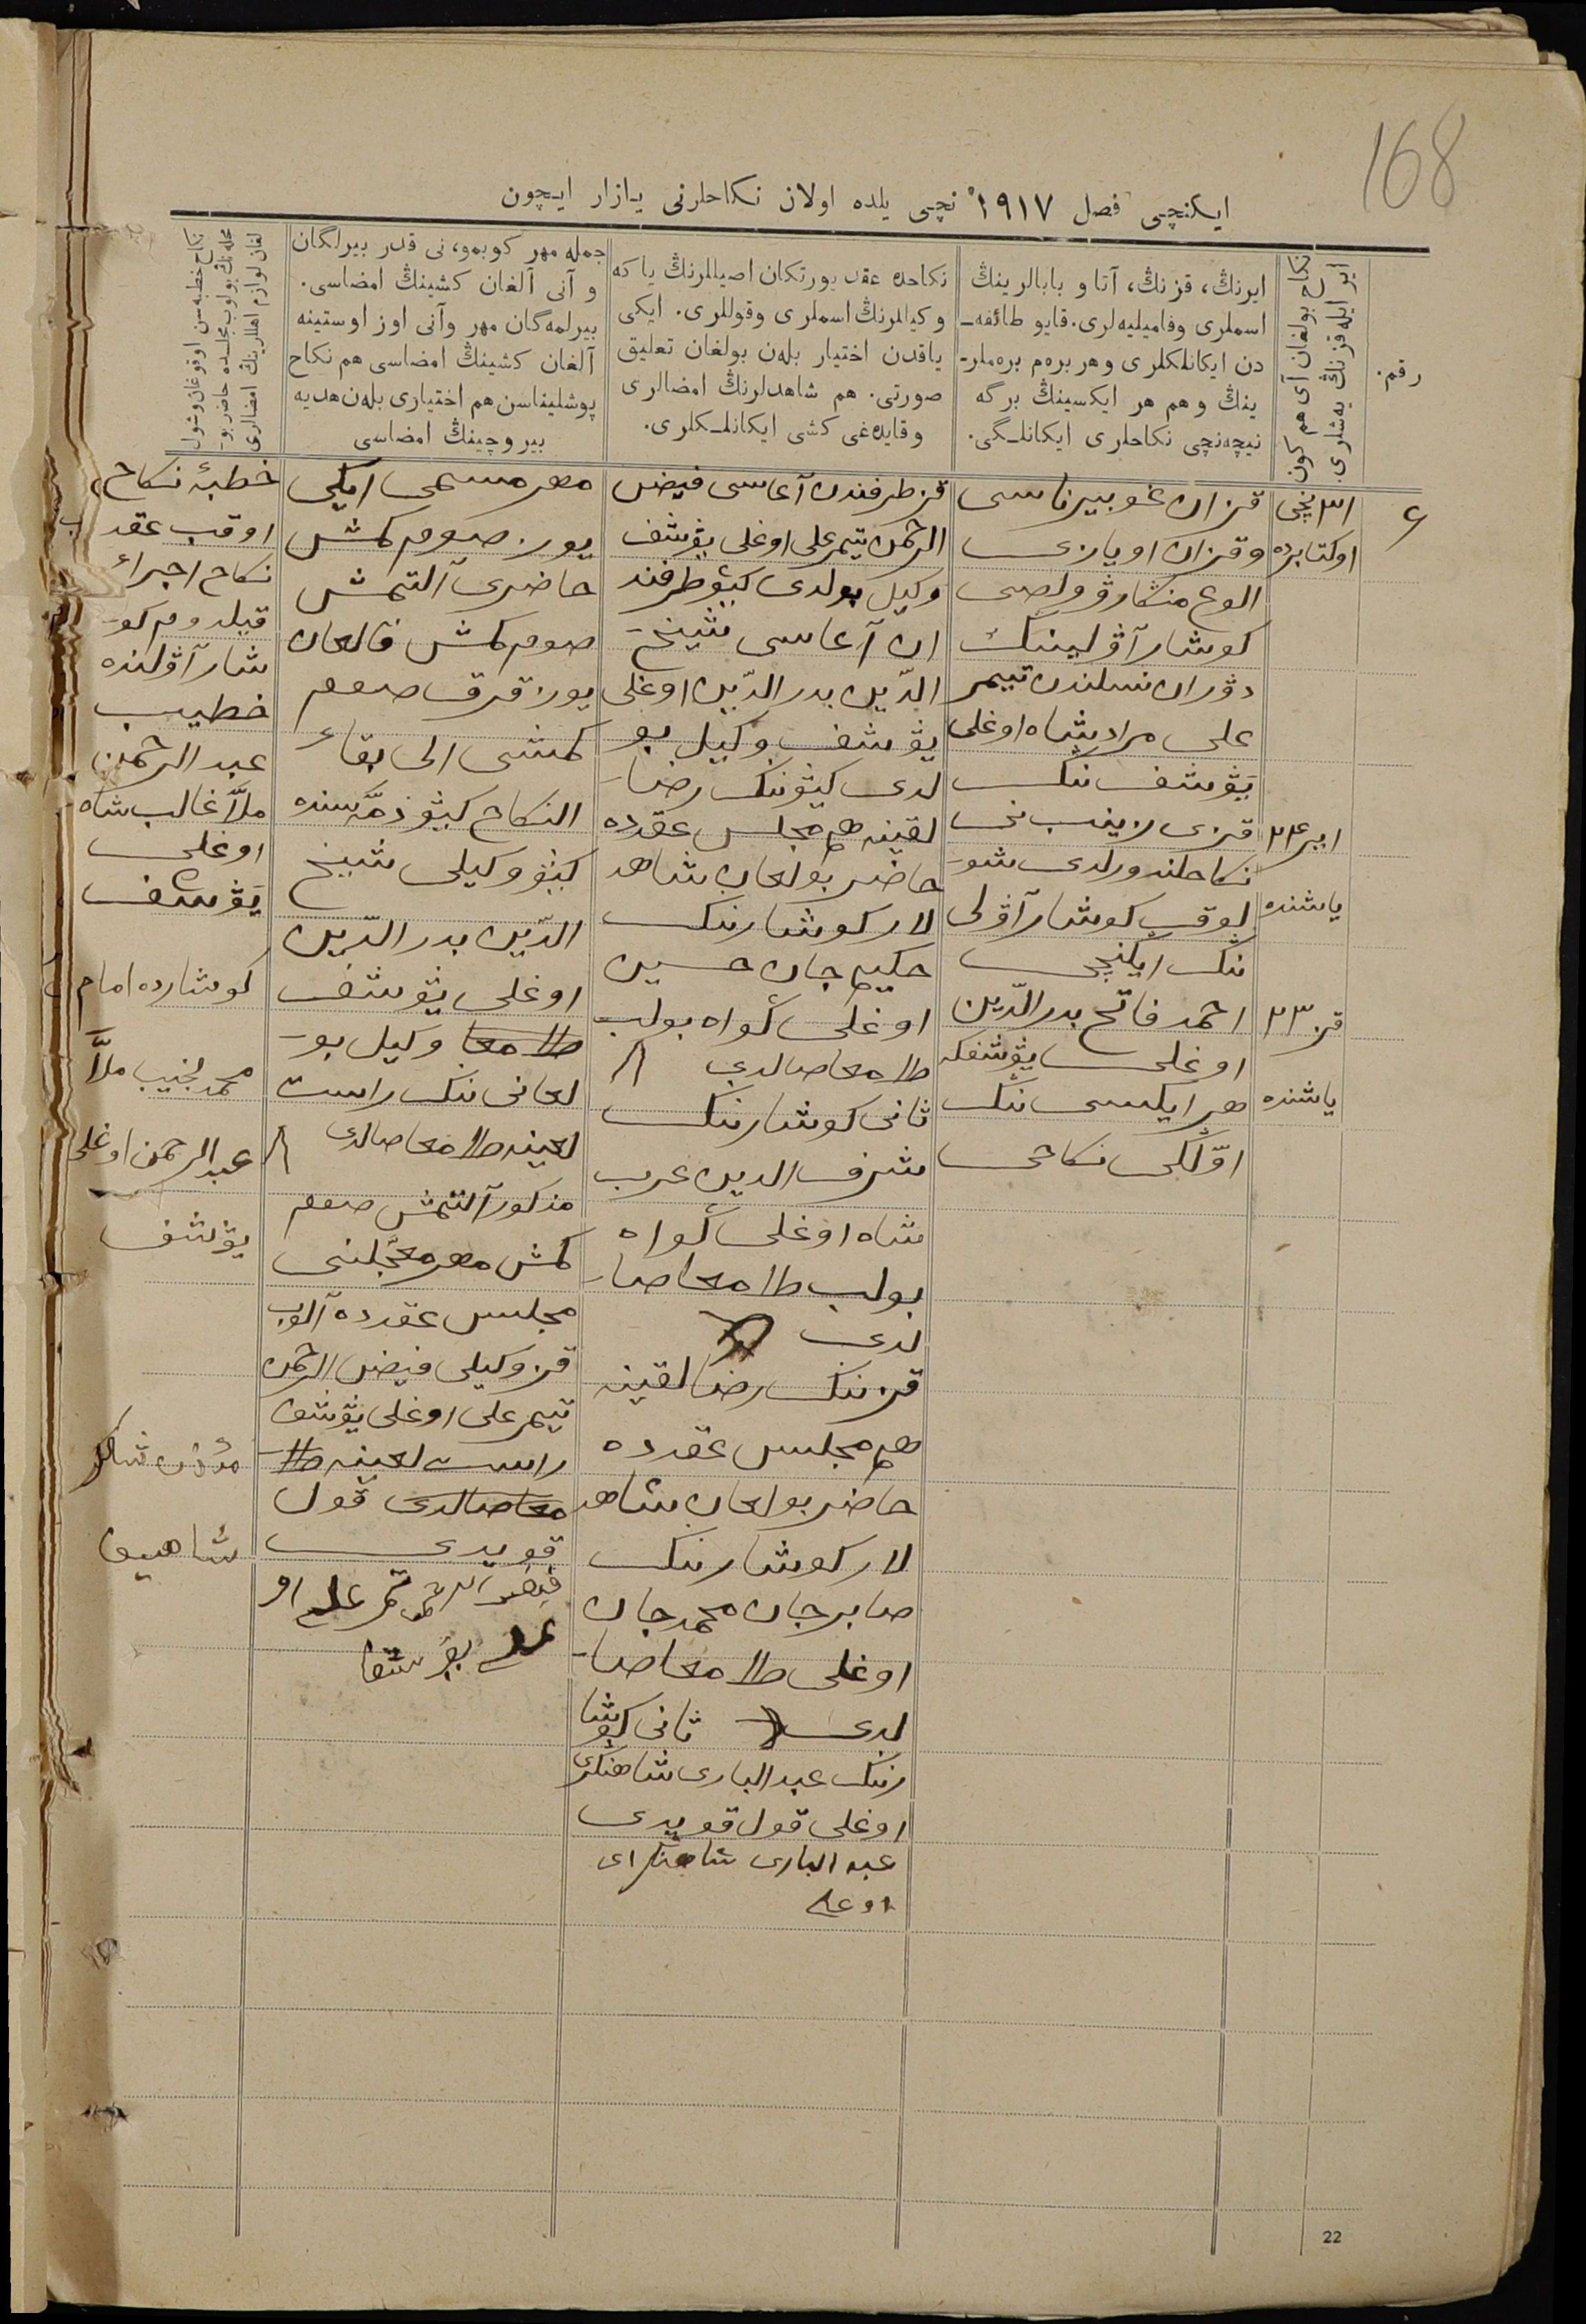 168
ایکنچی فصل ١٩١٧ نچی یلده اولان نکاحلرنی یازار ایچون
رقم.
ایر ایله قزنڭ یه‌شلری.
نکاح بولغان آی هم کون
ایرنڭ، قزنڭ، آتا و بابالرینڭ
اسملری وفامیلیه‌لری. قایو طائفه‌ـ
دن ایکانلکلری و هر برهم بره‌ملرـ
ینڭ و هم هر ایکسینڭ برگه
نیچه‌نچی نکاحلری ایکانلـگی.
نکاحده عقد یورتکان اصیللرنڭ یا که
وکیللرنڭ اسملری وقوللری. ایکی
یاقدن اختیار بله‌ن بولغان تعلیق
صورتی. هم شاهدلرنڭ امضالری
وقایده‌غی کشی ایکانلـکلری.
جمله مهر کوبمو، نی قدر بیرلگان
و آنی آلغان کشینڭ امضاسی.
بیرلمه‌گان مهر وآنی اوز اوستینه
آلغان کشینڭ امضاسی هم نکاح
پوشلیناسن هم اختیاری بله‌ن هدیه
بیروچینڭ امضاسی
نکاح خطبه‌سن اوقوغان وشول
محله‌نڭ بولوب مجلسده حاضر بوـ
لغان لوازم اهللرینڭ امضالری
۶
٣١ نچی
اوکتابرده
ایر ٢٤
یاشنده
قز ٢٣
یاشنده
قزان غوبیرناسی
وقزان اویازی
الوغ منکار ۋولصی
کوشار آۋلیننک
دۋران نسلندن تیمر
علی مرادیشاه اوغلی
یۋشف ننک
قزی زینب نی
نکاحلندورلدی شوـ
لوقب کوشار آۋلی
ننک ایکنچی
احمد فاتح بدرالدّین
اوغلی یۋشفکه
هر ایکسی ننک
اوّلگی نکاحی
قز طرفندن آغاسی فیض
الرحمن تیمرعلی اوغلی یۋشف
وکیل بولدی کیۋ طرفند
ان آغاسی شیخ ـ
الدّین بدرالدّین اوغلی
یۋشف وکیل بو
لدی کیۋننک رضاـ
لقینه هم مجلس عقدده
حاضر بولغان شاهد
لار کوشارننک
حکیم جان حسین
اوغلی گواه بولب
طامغاصالدی
ثانی کوشارننک
شرف الدین عرب
شاه اوغلی گواه
بولب طامغاصاـ
لدی
قزننک رضالقینه
هم مجلس عقدده
حاضر بولغان شاهد
لار کوشارننک
صابرجان محمدجان
اوغلی طامغاصاـ
لدی ثانی کوشا
رننک عبدالباری شاهنگری
اوغلی قول قویدی
عبد الباری شاهنکرای
اوغلی
مهر مسمی ایکی
یوز صوم کمش
حاضری آلتمش
صوم کمش قالغان
یوز قرق صوم
کمشی الی بقاء
النکاح کیۋ ذمّه سنده
کیۋ وکیلی شیخ
الدّین بدرالدّین
اوغلی یۋشف
طامغا وکیل بوـ
لغانی ننک راست
لغینه طامغاصالدی
مذکور آلتمش صوم
کمش مهر معجّلنی
مجلس عقدده آلوب
قز وکیلی فیض الرحمن
تیمرعلی اوغلی یۋشف
راست لغینه طا
مغاصالدی قول
قویدی
فیض الرحمن تمرعلی او
غلی یۋشف
خطبۀ نکاح
اوقب عقد
نکاح اجراء
قیلدوم کوـ
شار آۋلنده
خطیب
عبد الرحمن
ملاّ غالب شاه
اوغلی
یۋشف
کوشارده امام
محمد نجیب ملاّ
عبد الرحمن اوغلی
یۋشف
مؤذن شاکر
22